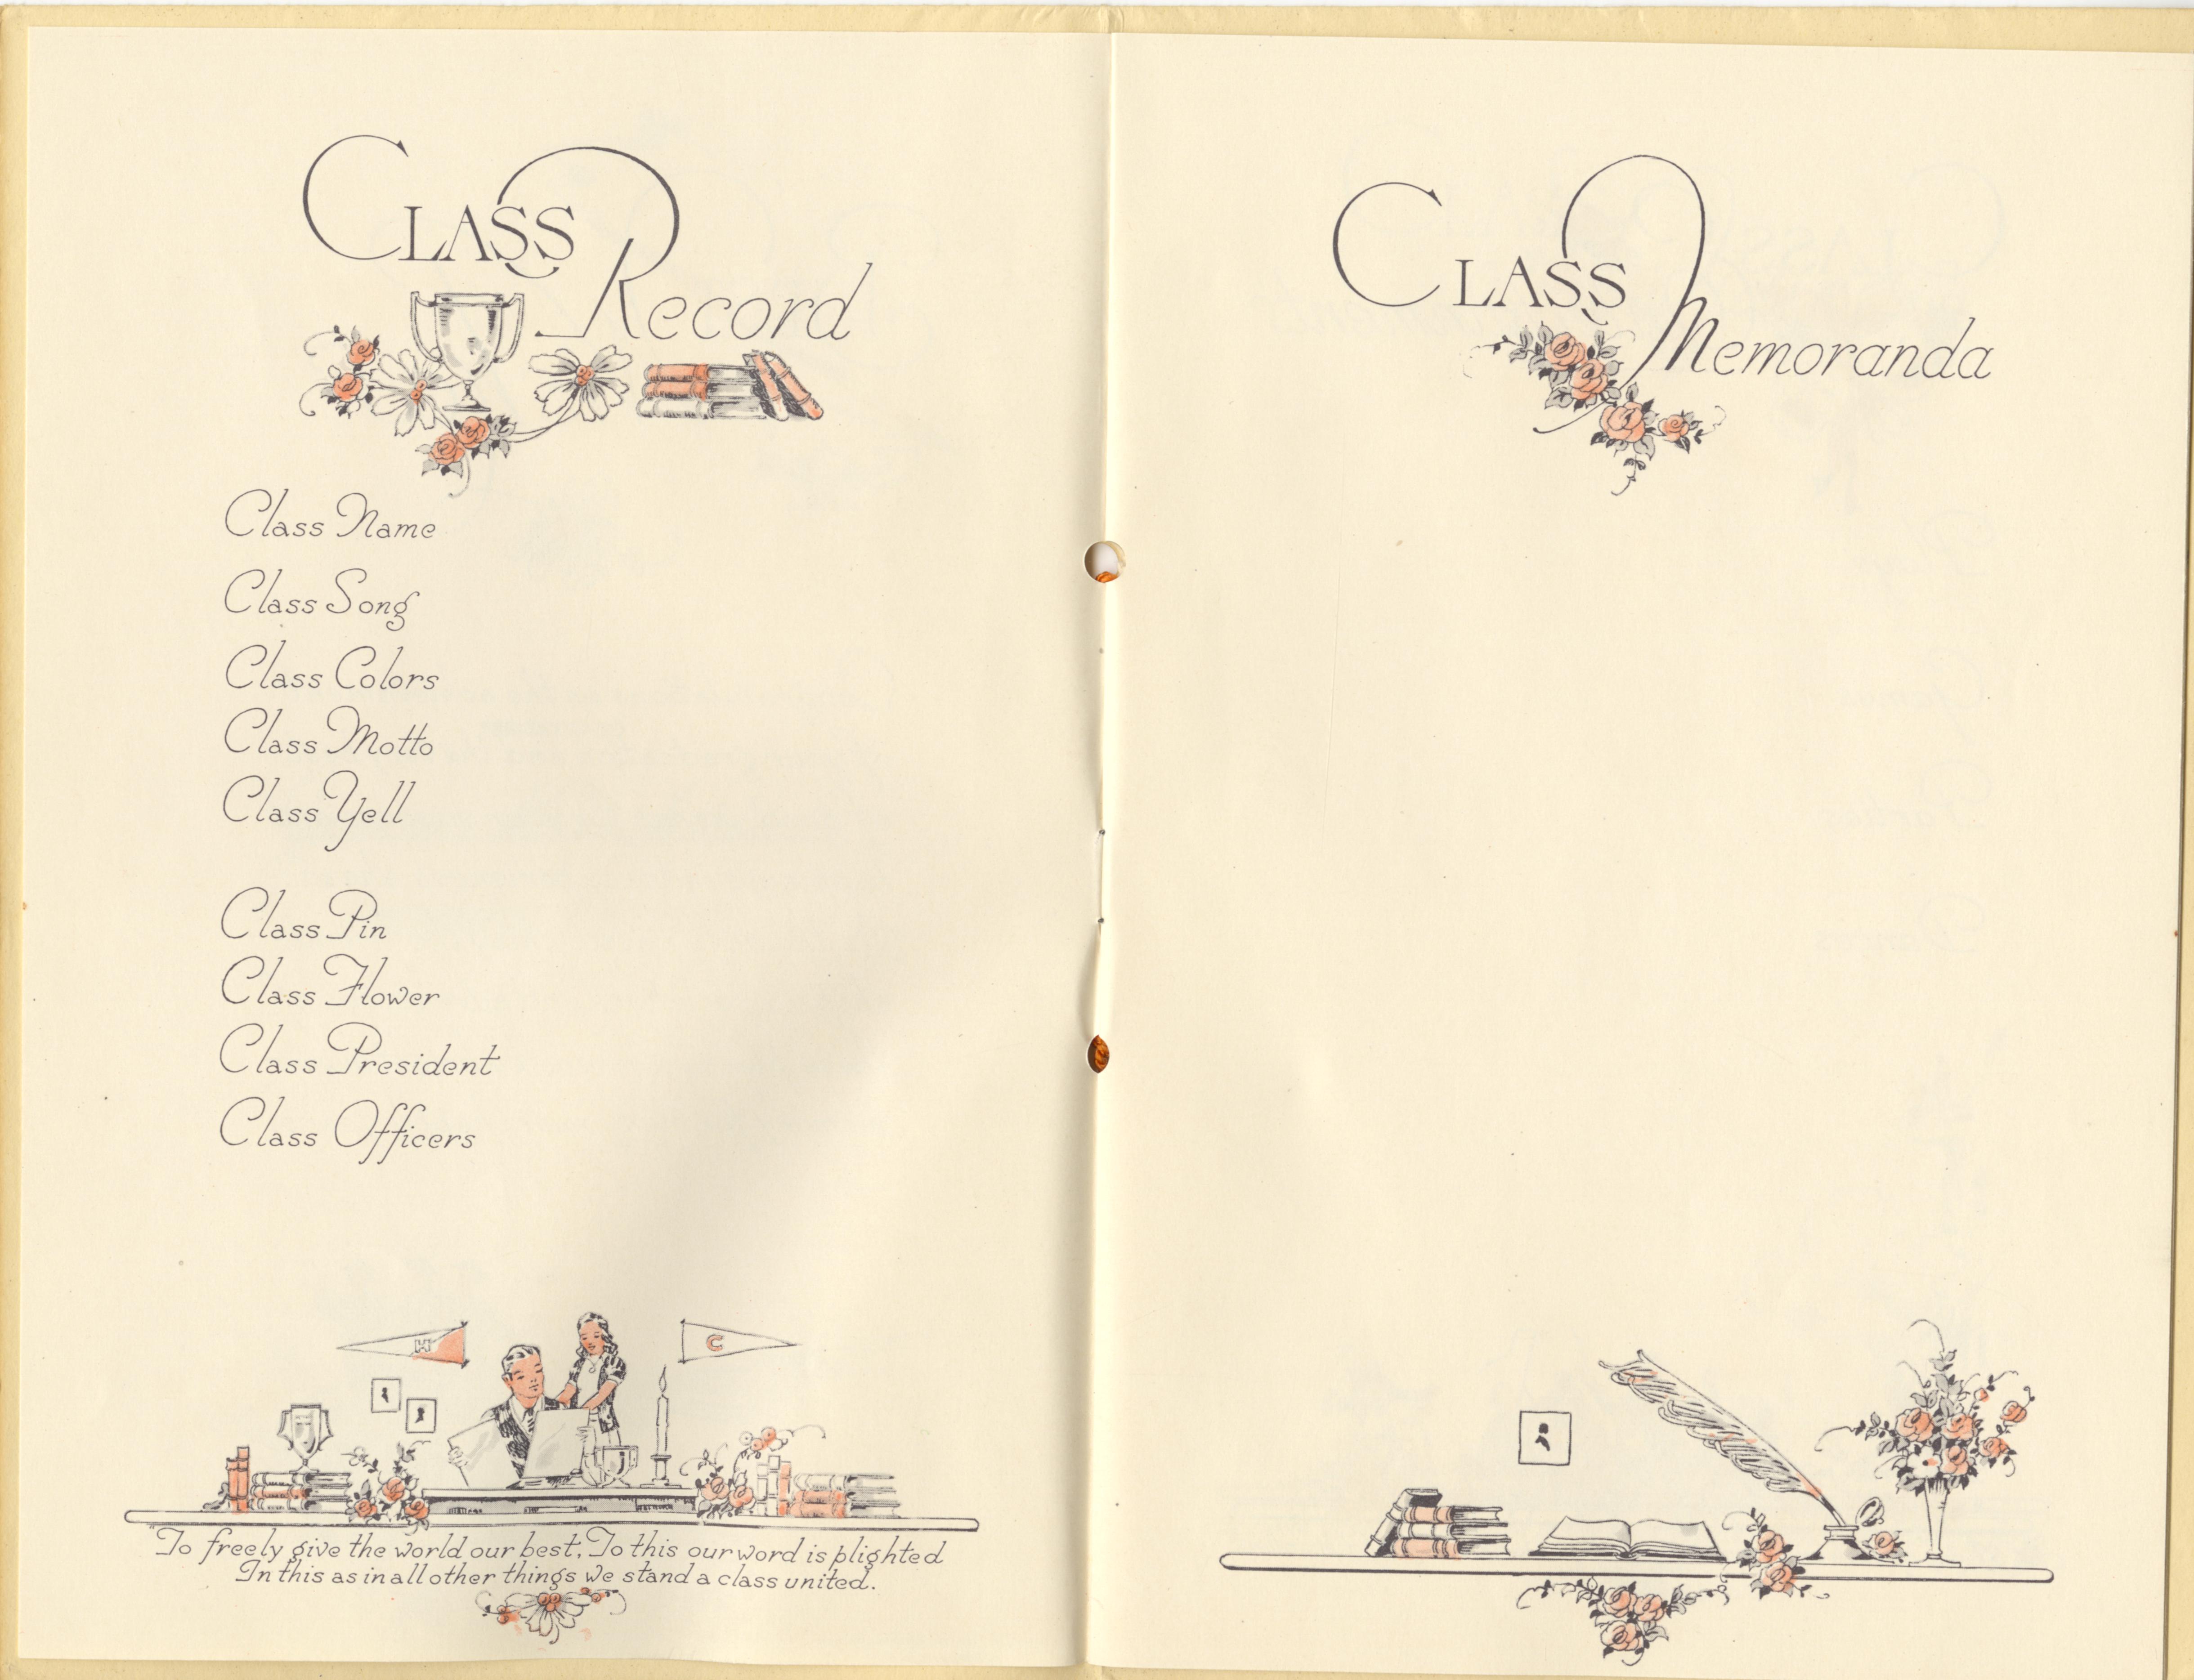 CLASS
Record
Class Name
Class Song
Class Colors
Class Motto
Class Yell
Class Pin
Class Flower
Class President
Class Officers
H
C
"To freely give the world our best, To this our word is plighted
In this as in all other things we stand a class united.
CLASS
Memoranda